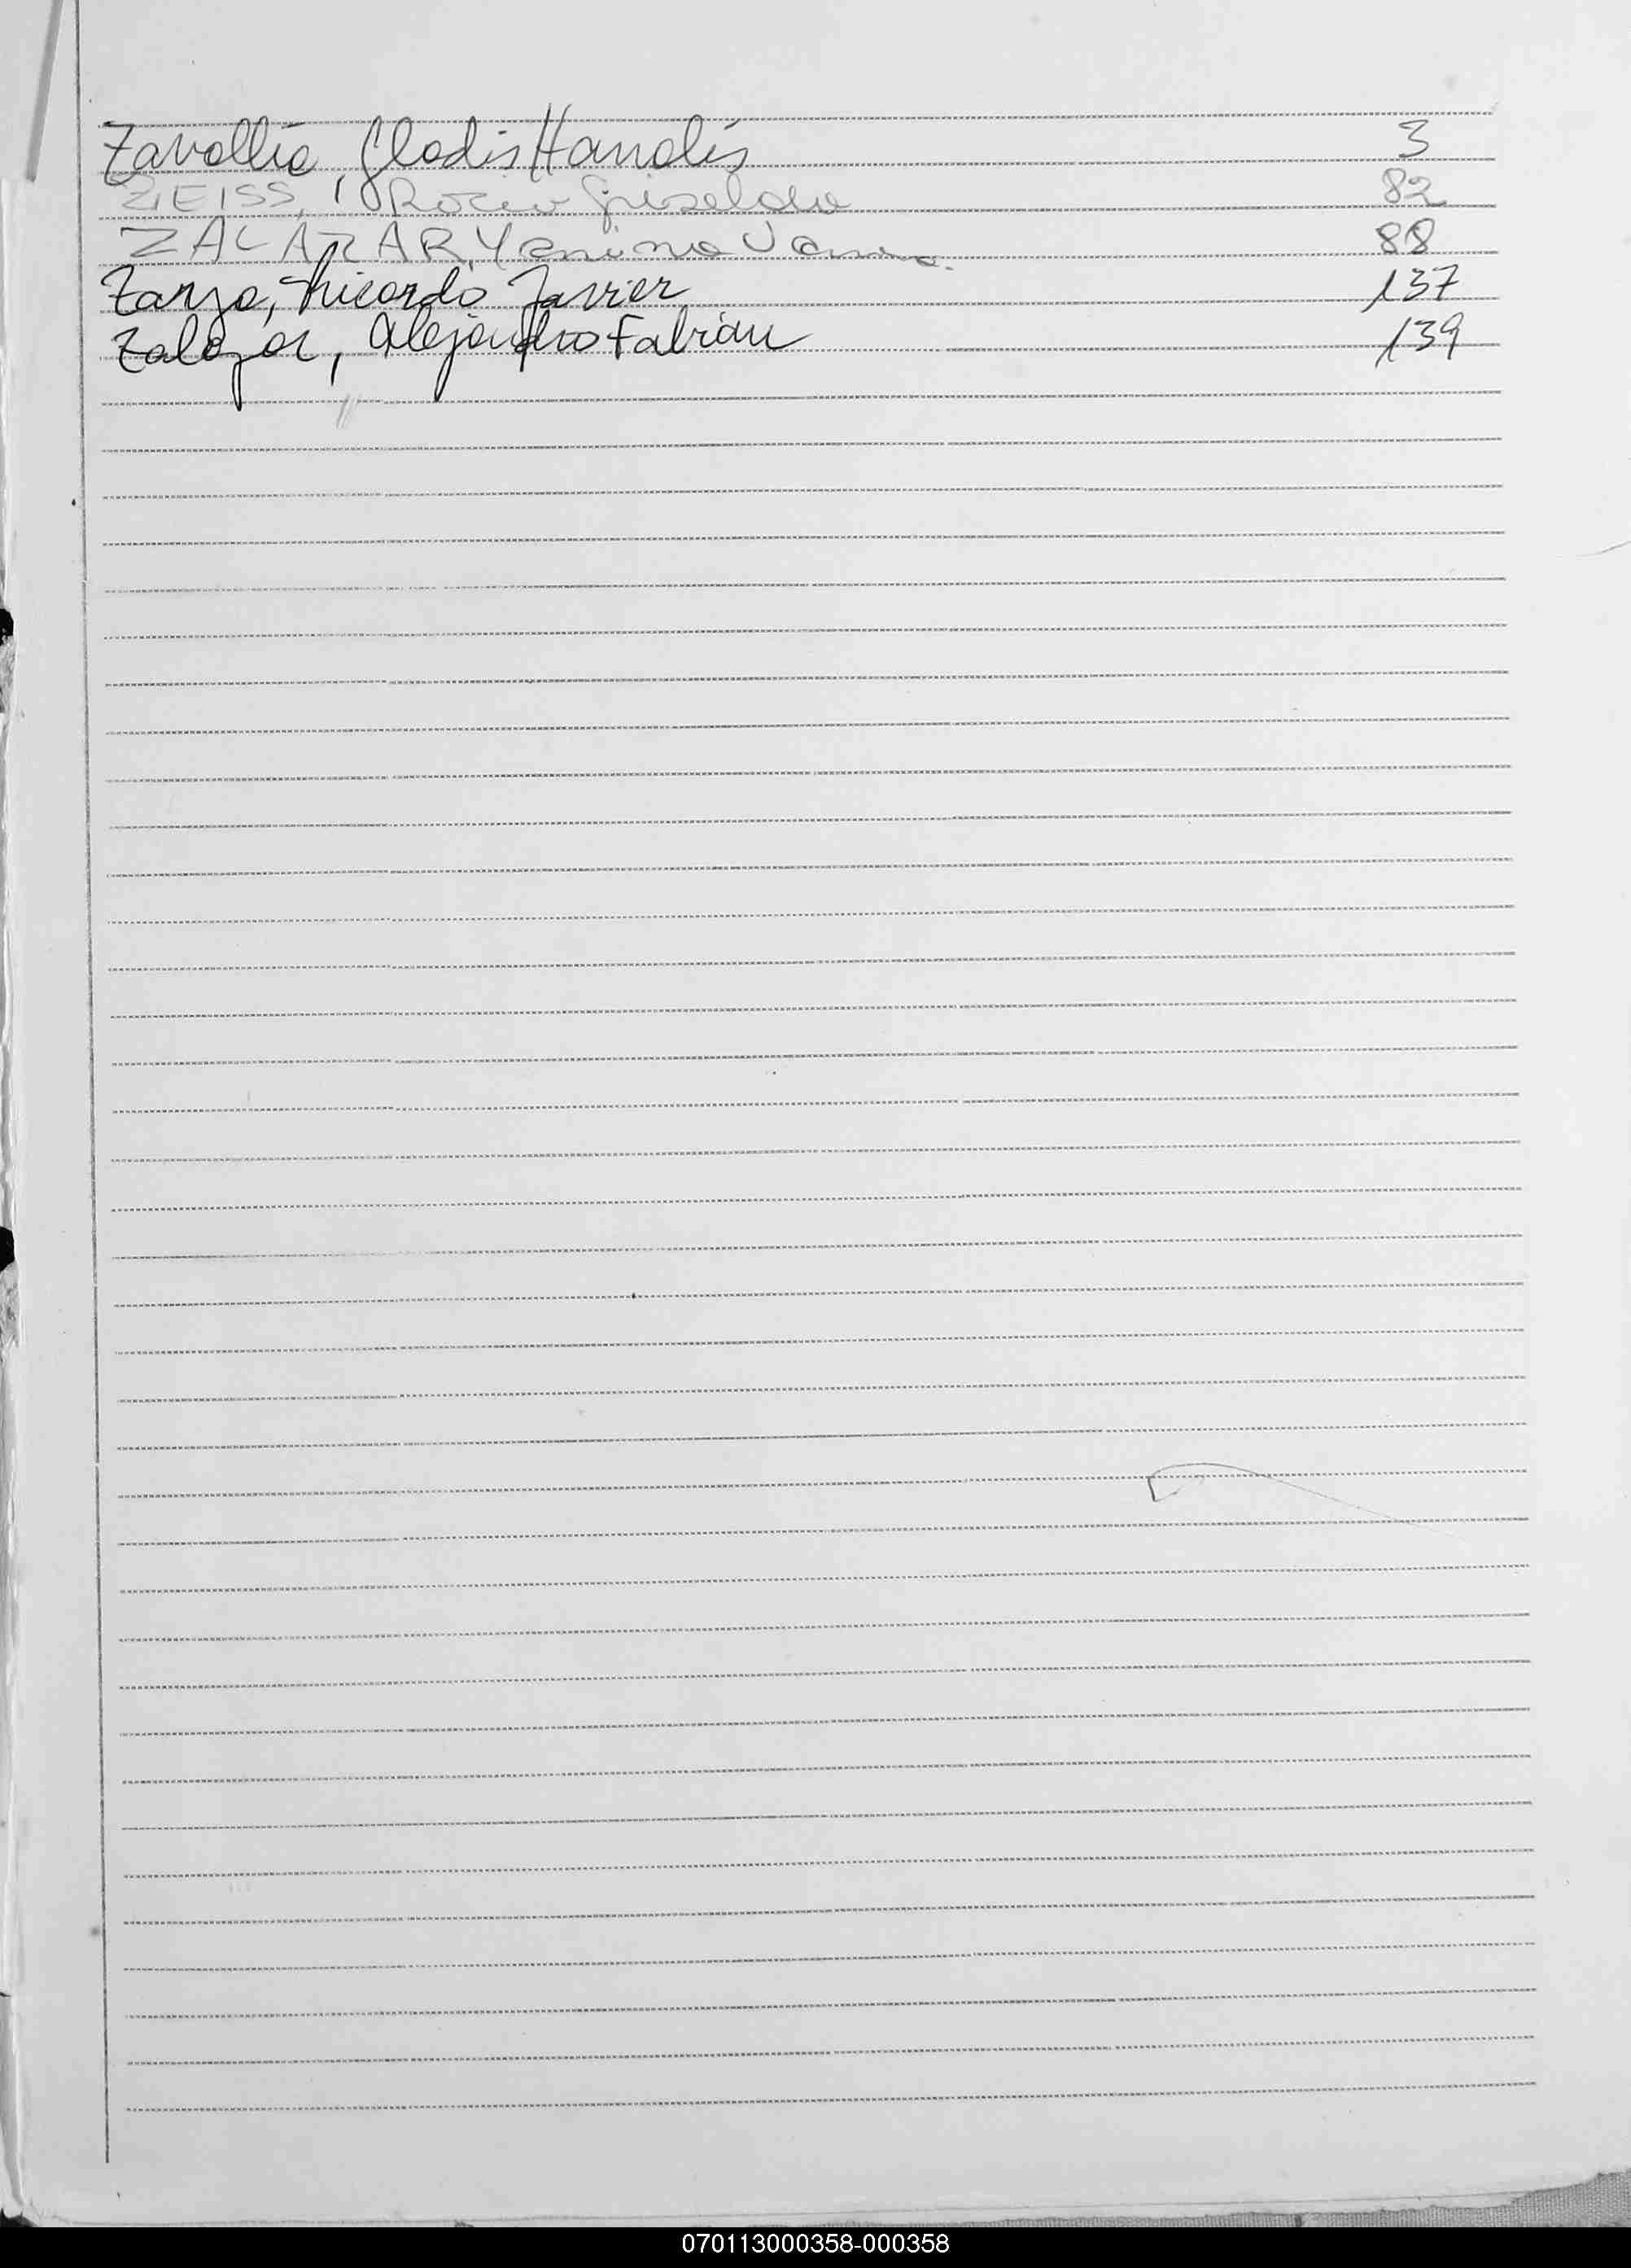 Zavallía, Gladis Hanalís 3
ZEISS, Rocío Griselda 82
ZALAZAR, Yanina Vanina. 88
Zarza, Ricardo Javier 137
Zalazar, Alejandro Fabián 139
070113000358-000358